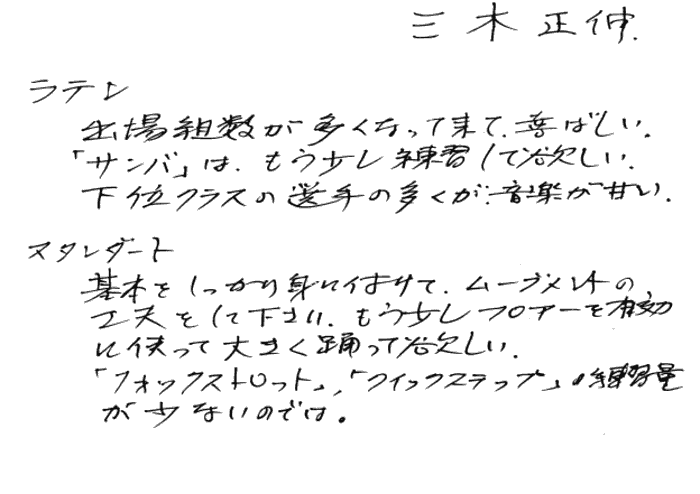 三木正伸.
ラテン
出場組数が多くなって来て、喜ばしい.
「サンバ」は、もう少し練習して欲しい.
下位クラスの選手の多くが、音楽が甘い.
スタンダート
基本をしっかり身に付けて、ムーブメントの、
工夫をして下さい. もう少しフロアーを有効
に使って大きく踊って欲しい.
「フォックストロット」、「クイックステップ」の練習量
が少ないのでは。